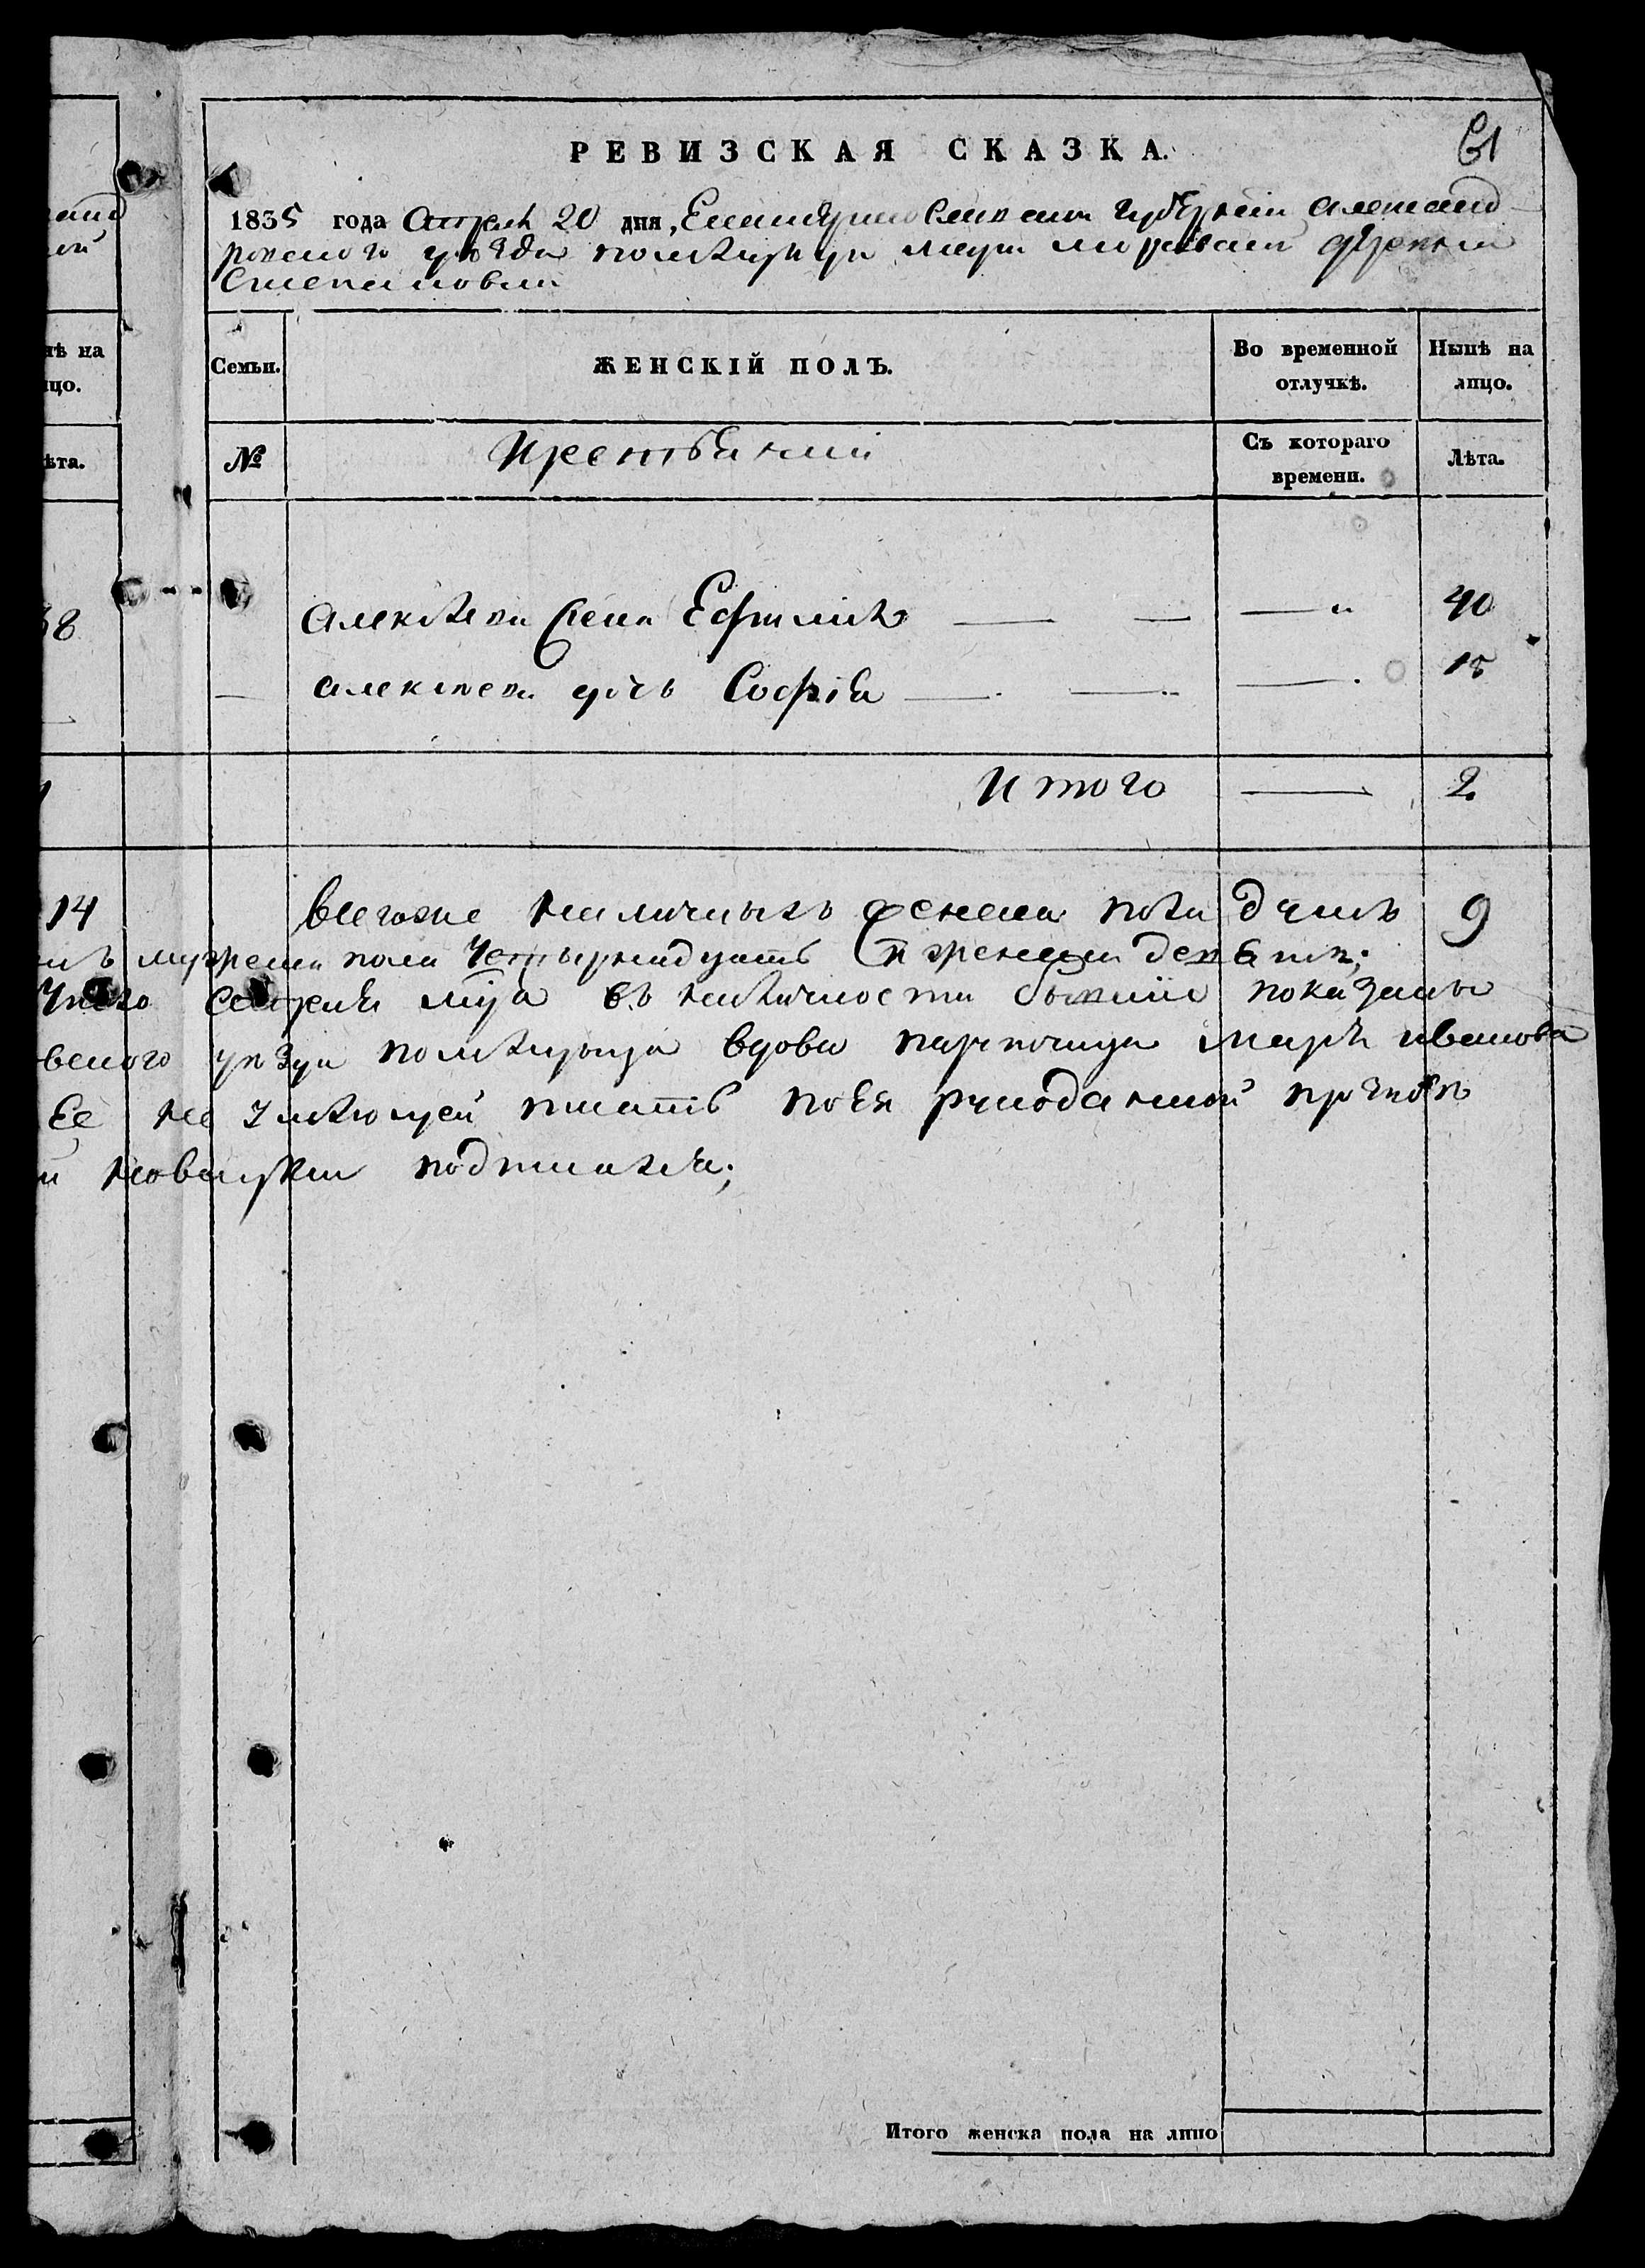 61
РЕВИЗСКАЯ СКАЗКА.
1835 года Апреля 20 дня, Екатеринославской губернии Александ
ровского уезда помѣщицы деревни
Степановки
нѣ на
цо.
Семьи.
ЖЕНСКІЙ ПОЛЪ.
Во временной
отлучкѣ.
Нынѣ на
лицо.
ѣта.
№
Крестьянки
Съ котораго
времени.
Лѣта.
38
Алексѣева жена Ефимія — — — „ 40
— Алексѣева дочь Софія — — — 15
Итого — 2
14 Всегоже наличныхъ женска пола душъ 9
мужеска пола четырнадцать и женска девять;
въ наличности показаны
помѣщица вдова Марья Иванова
Ее не умѣющей писать по Ея рукоданной прозьбѣ
подписался;
Итого женска пола на лицо